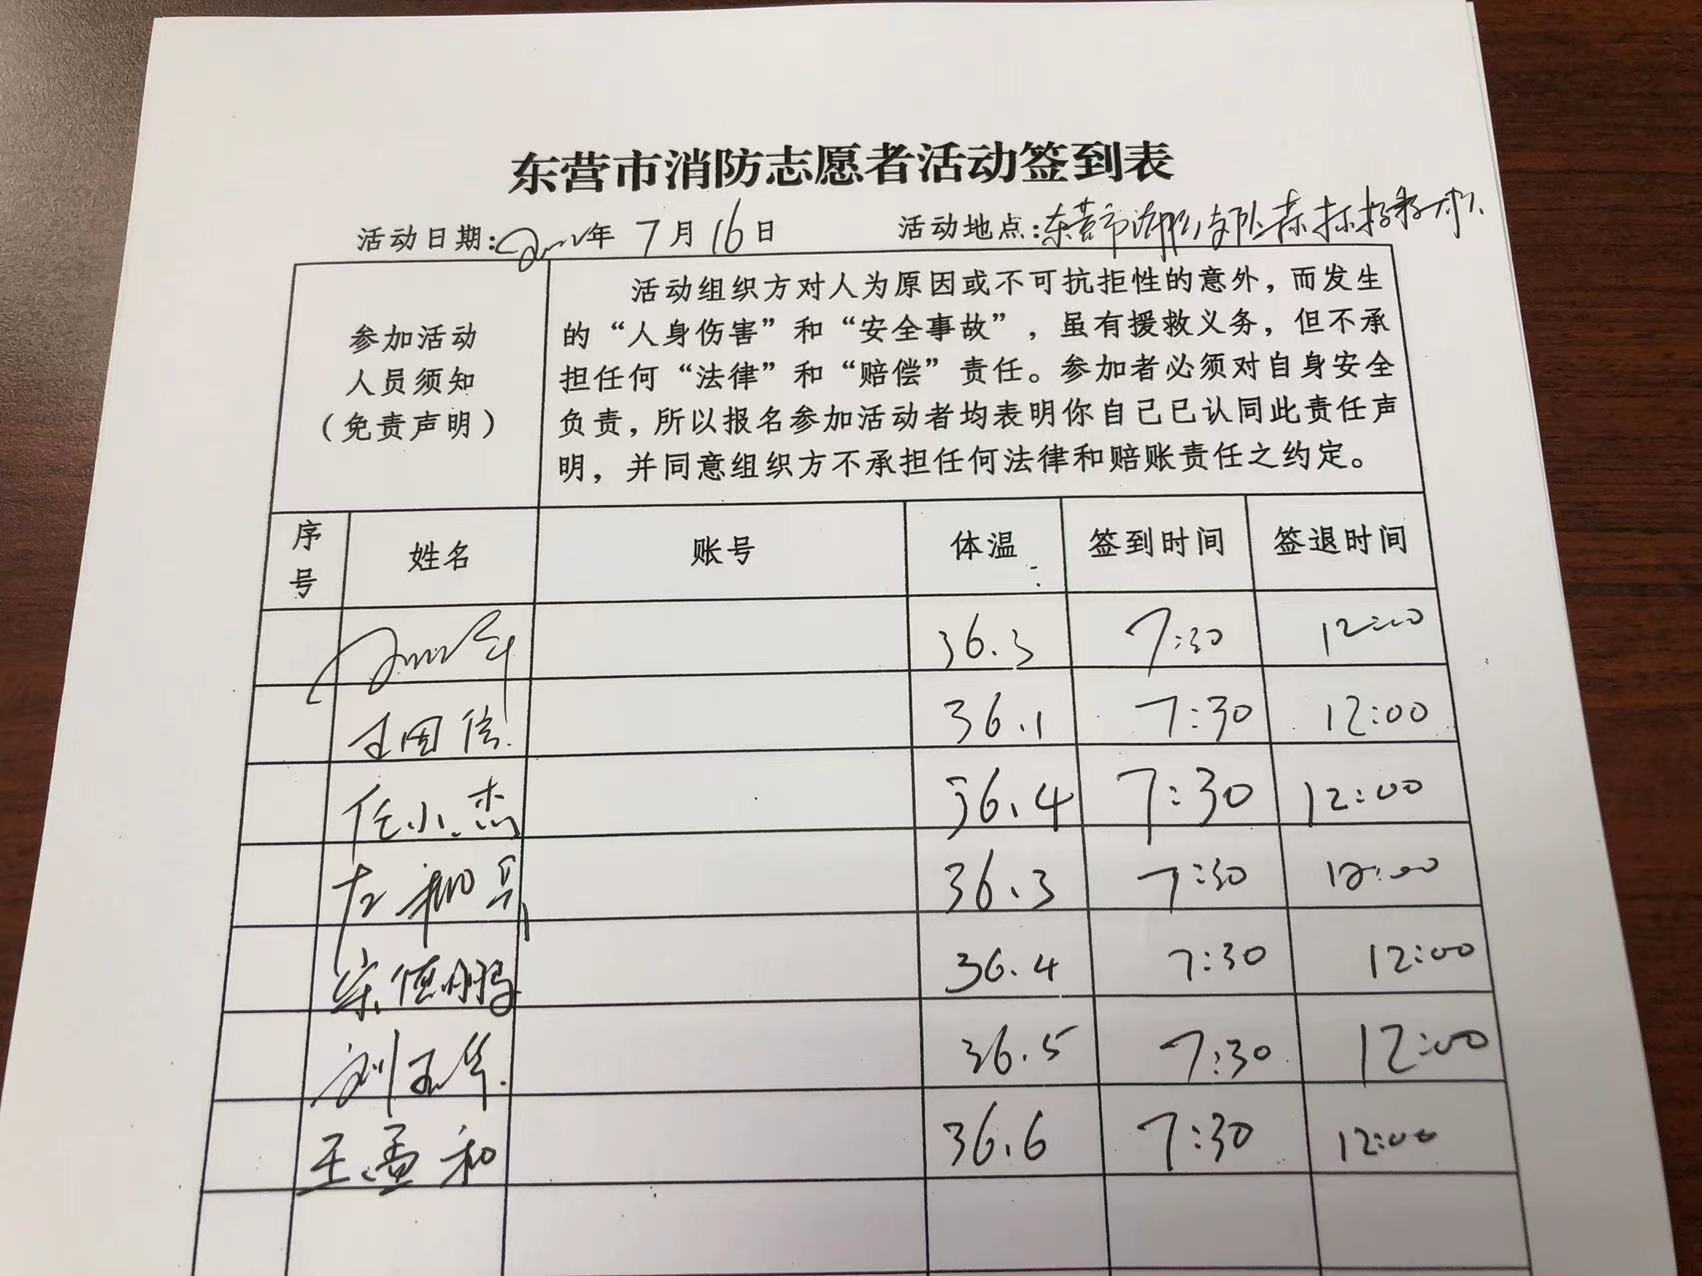 东营市消防志愿者活动签到表
活动日期: 年 7月16日 活动地点:东营市消防支队
参加活动
人员须知
（免责声明）
活动组织方对人为原因或不可抗拒性的意外，而发生
的“人身伤害”和“安全事故”，虽有援救义务，但不承
担任何“法律”和“赔偿”责任。参加者必须对自身安全
负责，所以报名参加活动者均表明你自己已认同此责任声
明，并同意组织方不承担任何法律和赔账责任之约定。
序号 姓名 账号 体温 签到时间 签退时间
36.3 7:30 12:00
王国信 36.1 7:30 12:00
任小杰 36.4 7:30 12:00
左 36.3 7:30 12:00
宋德鹏 36.4 7:30 12:00
刘玉华 36.5 7:30 12:00
王孟和 36.6 7:30 12:00